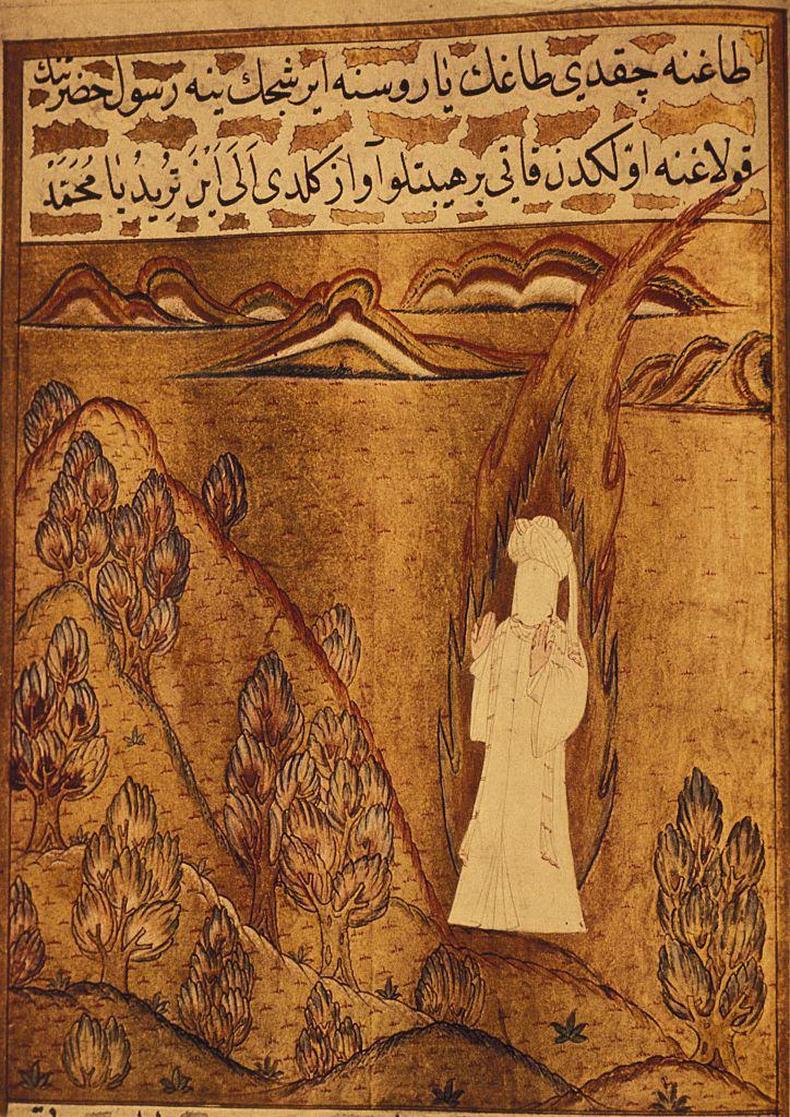 طاغنه چقدی طاغك یاروسنه ایرشجك ینه رسول حضرتنك
قولاغنه اوّلکدن قاتی بر هیبتلو آواز کلدی اَلَی اَیْنَ تُرِیدُ یَا مُحَمَّدْ